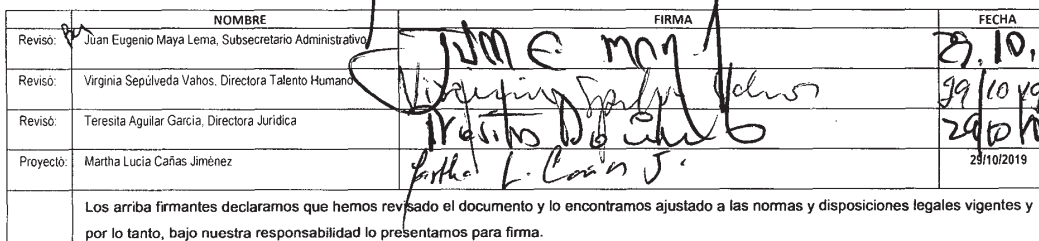 NOMBRE FIRMA FECHA
Revisó: Juan Eugenio Maya Lema, Subsecretario Administrativo 29.10.
Revisó: Virginia Sepúlveda Vahos, Directora Talento Humano Virginia Vahos 29/10/19
Revisó: Teresita Aguilar García, Directora Jurídica Teresita Aguilar 29/10/
Proyectó: Martha Lucía Cañas Jiménez Martha L. Cañas J. 29/10/2019
Los arriba firmantes declaramos que hemos revisado el documento y lo encontramos ajustado a las normas y disposiciones legales vigentes y
por lo tanto, bajo nuestra responsabilidad lo presentamos para firma.